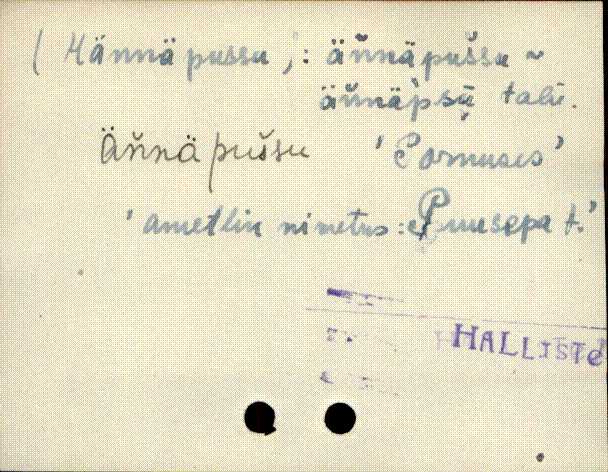 (Hännäpussu,: äňnäpušsu ~
äňnäpsü talu.
Äňnäpušsu 'Pornuses'
'ametlin nimetus: Puusepa t.'
HALLISTE